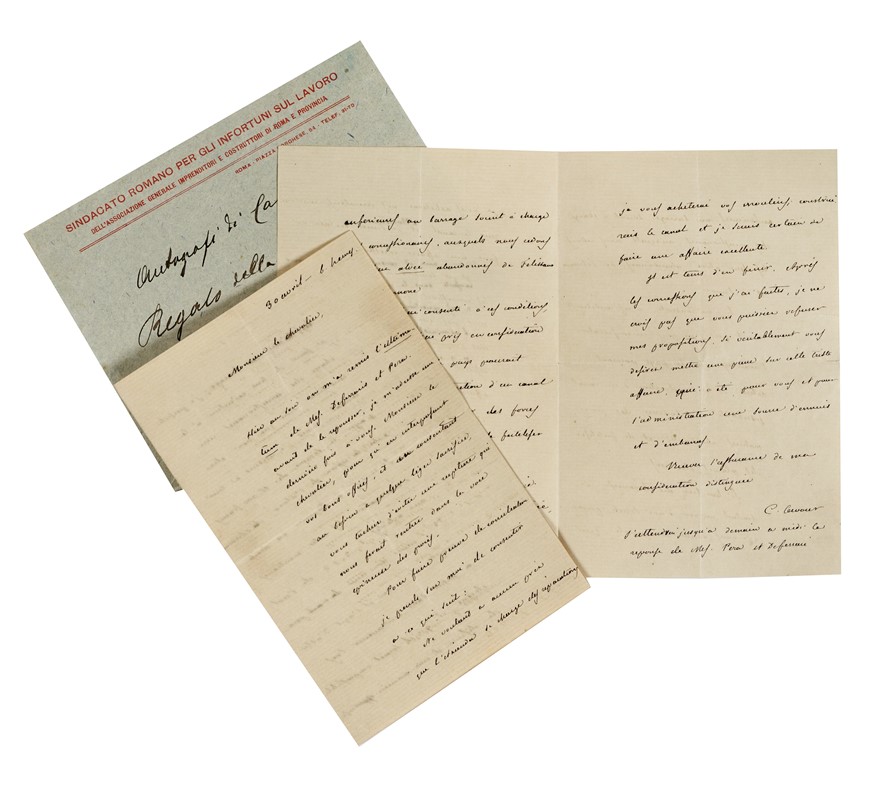 SINDACATO ROMANO PER GLI INFORTUNI SUL LAVORO
DELL'ASSOCIAZIONE GENERALE IMPRENDITORI E COSTRUTTORI DI ROMA E PROVINCIA
ROMA - PIAZZA BORGHESE, 84 - TELEF. 31-70
Autografi di Ca
Regalo della
30 avril - 6 heures
Monsieur le chevalier,
Hier au soir on m'a remis l'ultima-
tum de Mes. Deferraris et Pera.
avant de le repousser, je m'adresse une
dernière fois à vous, Monsieur le
chevalier, pour qu'en interposant
vos bons offices, et consentant
au besoin a quelque léger sacrifice,
vous tachiez d'éviter une rupture qui
nous ferait rentrer dans la voie
épineuse des procès.
Pour faire preuve de conciliation
je prends sur moi de consentir
a ce qui suit:
Ne voulant a aucun prix
que l'étendue se charge des réparations
supérieures au barrage soient à charge
concessionaires, auxquels nous cedons
abandonnés de
consenti à ces conditions,
pris en considération
pays pourrait
d'un canal
des forces
je vous acheterai vos moulins, construi
rais le canal et je serais certain de
faire une affaire excellente.
Il est tems d'en finir. Après
les concessions que j'ai faites, je ne
crois pas que vous puissiez refuser
mes propositions, si véritablement vous
desirez mettre une fin à cette triste
affaire, qui a été pour vous et pour
l'administration une source d'ennuis
et d'embarras.
Recevez l'assurance de ma
considération distinguée
C. Cavour
J'attendrai jusqu'à demain a midi la
reponse de Mes. Pera et Deferrari